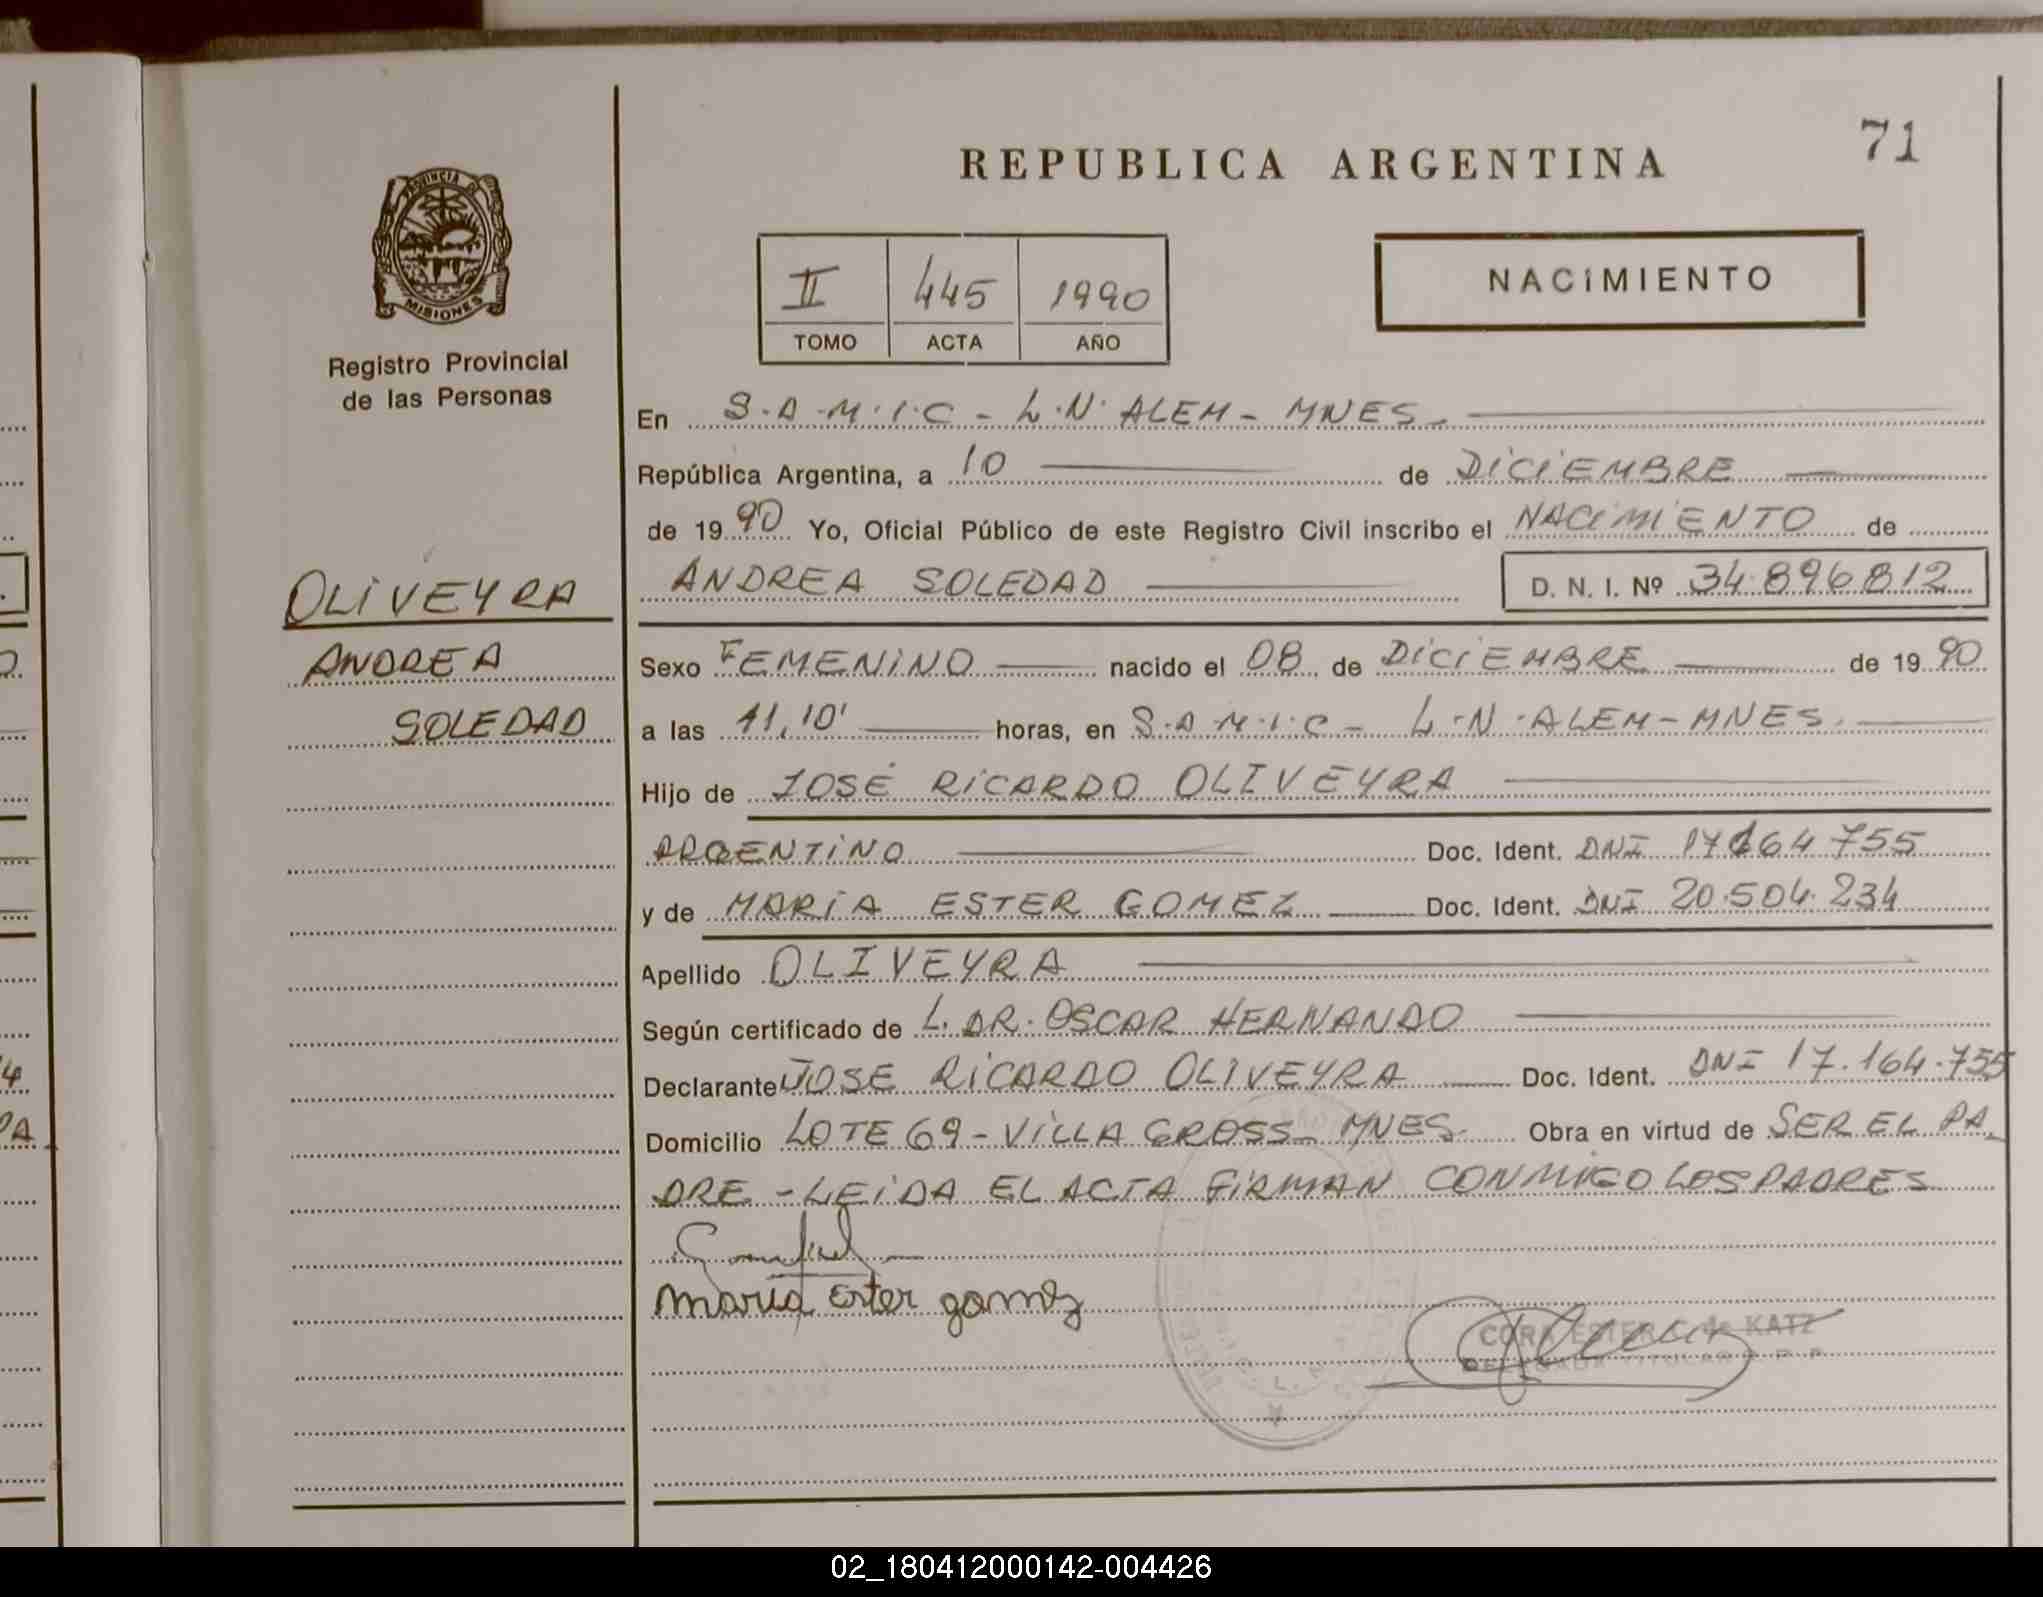 71
REPUBLICA ARGENTINA
PROVINCIA DE
MISIONES
Registro Provincial
de las Personas
II 445 1990
TOMO ACTA AÑO
NACIMIENTO
OLIVEYRA
ANDREA
SOLEDAD
En S.A.M.I.C - L.N. ALEM - MNES
República Argentina, a 10 de DICIEMBRE
de 1990 Yo, Oficial Público de este Registro Civil inscribo el NACIMIENTO de
ANDREA SOLEDAD D. N. I. Nº 34.896.812
Sexo FEMENINO nacido el 08 de DICIEMBRE de 1990
a las 11,10' horas, en S.A.M.I.C - L.N. ALEM - MNES.
Hijo de JOSÉ RICARDO OLIVEYRA
ARGENTINO Doc. Ident. DNI 17164755
y de MARIA ESTER GOMEZ Doc. Ident. DNI 20.504.234
Apellido OLIVEYRA
Según certificado de L. DR. OSCAR HERNANDO
Declarante JOSE RICARDO OLIVEYRA Doc. Ident. DNI 17.164.755
Domicilio LOTE 69 - VILLA GROSS MNES. Obra en virtud de SER EL PA
DRE - LEIDA EL ACTA FIRMAN CONMIGO LOS PADRES
Maria Ester gomez
CORA ESTER C. de KATZ
DELEGADA TITULAR R.P.P.
02_180412000142-004426